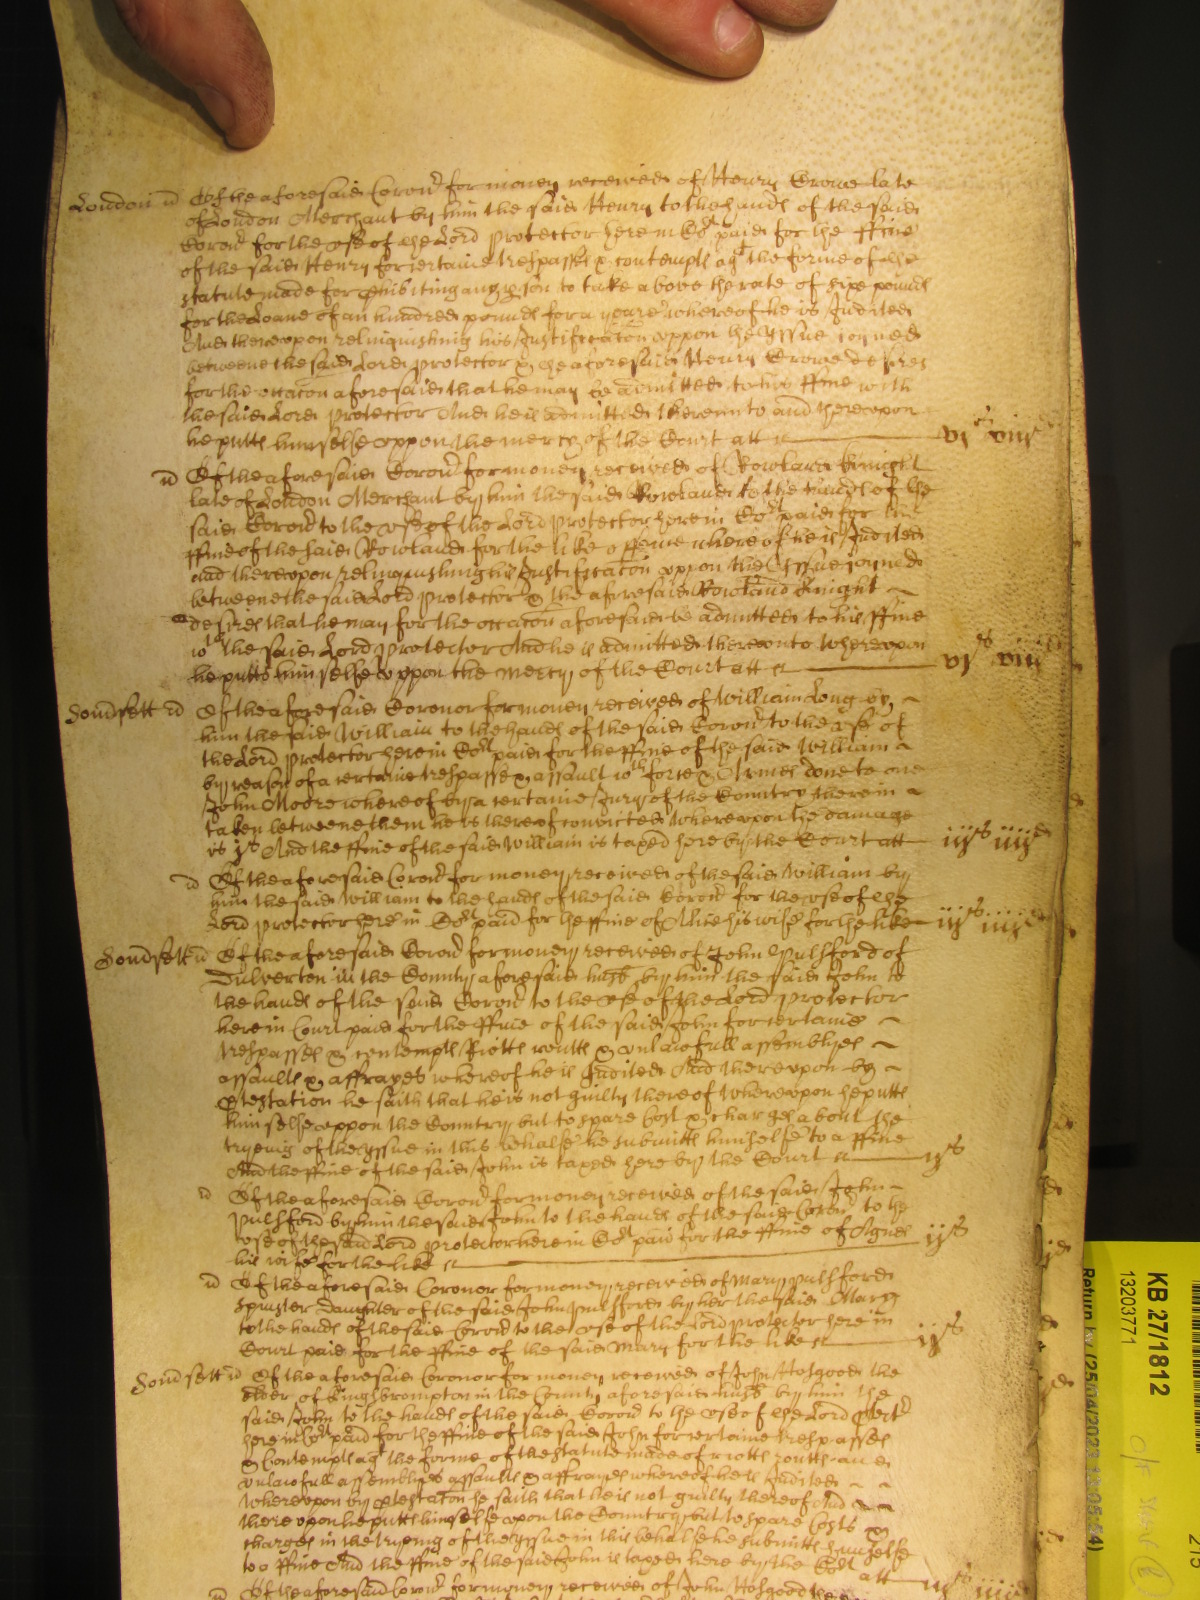 London
Of the aforesaid Coron^r for money received of Henry Crowe late
of London Merchant by him the said Henry to the hands of the said
Coron^r for the use of the Lord Protector here in Co^rt paid for the ffine
of the said Henry for certaine trespasses & contempts ag^t the forme of the
statute made for phibiting any pson to take above the rate of sixe pounds
for the Loane of an hundred pounds for a yeare whereof he is Indicted
And thereupon relinquishing his Justificacon uppon the yssue joyned
betweene the said Lord Protector & the aforesaid Henry Crowe desires
for the occacon aforesaid that he may be admitted to his ffine with
the said Lord Protector And he is admitted thereunto and thereupon
he putts himselfe uppon the mercy of the Court att vj^s viij^d
Of the aforesaid Coron^r for money received of Rowland Knight
late of London Merchant by him the said Rowland to the hands of the
said Coron^r to the use of the Lord Protector here in Co^rt paid for the
ffine of the said Rowland for the like offence whereof he is Indicted
and thereupon relinquishing his Justificacon uppon the yssue joyned
betweene the said Lord Protector & the aforesaid Rowland Knight
desires that he may for the occacon aforesaid be admitted to his ffine
w^th the said Lord Protector And he is admitted thereunto Whereupon
he putts himselfe uppon the mercy of the Court att vj^s viij^d
Somsett
Of the aforesaid Coronor for money received of William Long by
him the said William to the hands of the said Coron^r to the use of
the Lord Protector here in Co^rt paid for the ffine of the said William
by reason of a certaine trespasse & assault w^th force & Armes done to one
John Moore whereof by a certaine Jury of the Country therein
taken betweene them he is thereof convicted Whereupon the damage
is And the ffine of the said William is taxed here by the Court att iij^s iiij^d
Of the aforesaid Coron^r for money received of the said William by
him the said William to the hands of the said Coron^r for the use of the
Lord Protector here in Co^rt paid for the ffine of Alice his wife for the like iij^s iiij^d
Somsett
Of the aforesaid Coron^r for money received of John Pulsford of
Dulverton in the County aforesaid husb by him the said John to
the hands of the said Coron^r to the use of the Lord Protector
here in Court paid for the ffine of the said John for certaine
trespasses & contempts Riotts routts & unlawfull assemblyes
assaults & affrayes whereof he is Indicted And thereupon by
ptestation he saith that he is not guilty thereof Whereupon he putts
himselfe uppon the Country but to spare Cost & charges about the
tryeing of the yssue in this behalfe he submitts himselfe to a ffine
And the ffine of the said John is taxed here by the Court ij^s
Of the aforesaid Coron^r for money received of the said John
Pulsford by him the said John to the hands of the said Coron^r to the
use of the said Lord Protector here in Co^rt paid for the ffine of Agnes
his wife for the like ij^s
Of the aforesaid Coronor for money received of Mary Pulsford
Spinster daughter of the said John Pulsford by her the said Mary
to the hands of the said Coron^r to the use of the Lord Protector here in
Court paid for the ffine of the said Mary for the like ij^s
Somsett
Of the aforesaid Coronor for money received of John Hosgood the
elder of Kingsbrompton in the County aforesaid husb by him the
said John to the hands of the said Coron^r to the use of the Lord ptect^r
here in Co^rt paid for the ffine of the said John for certaine trespasses
& Contempts ag^t the forme of the statute made of riotts routts and
unlawfull assemblyes assaults & affrayes whereof he is Indicted
Whereupon by ptestacon he saith that he is not guilty thereof And
thereupon he putts himselfe upon the Country but to spare Costs &
charges in the tryeing of the yssue in this behalfe he submitts himselfe
to a ffine And the ffine of the said John is taxed here by the Co^rt att
Of the aforesaid Coron^r for money received of John Hosgood
KB 27/1812
13203771
Return by (25/04/2023